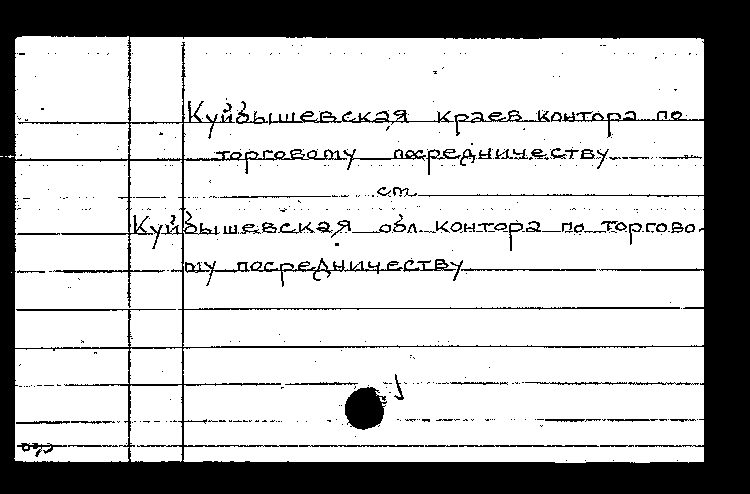 Куйбышевская краев контора по
торговому посредничеству
см
Куйбышевская обл. контора по торгово-
му посредничеству